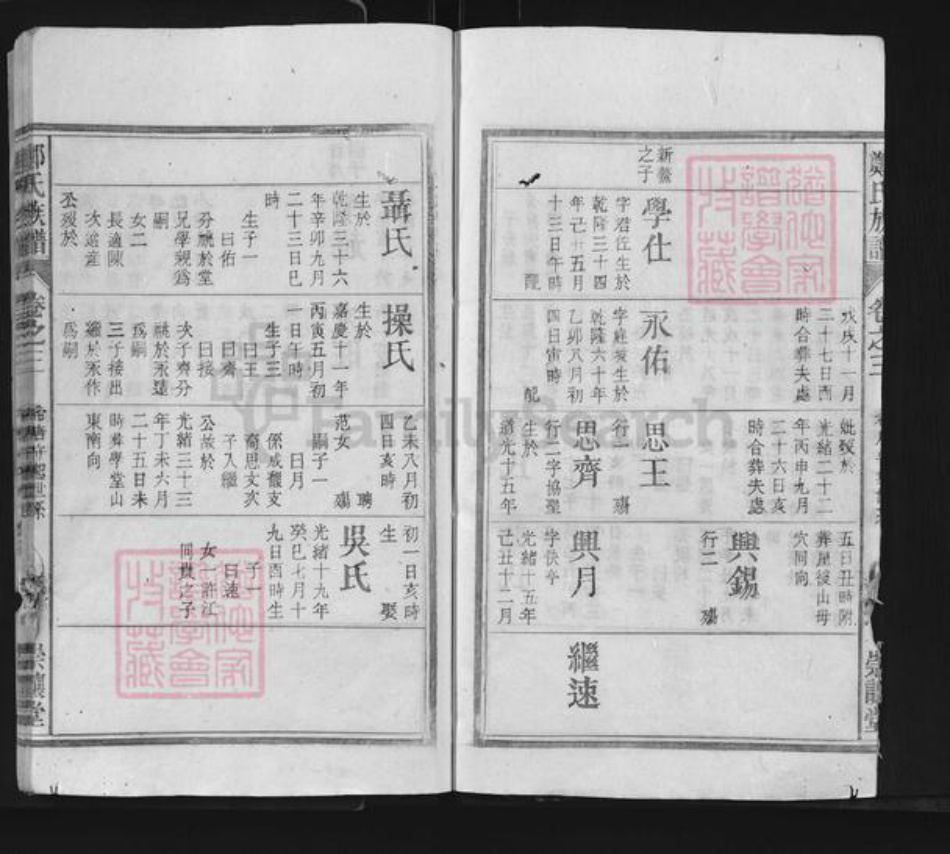 鄭氏族譜
卷之三
戊戌十一月
二十七日酉
時合葬失處
妣歿於
光緒二十二
年丙申九月
二十六日亥
時合葬失處
五日丑時附
葬屋後山毋
穴同向
興錫
行二
殤
新鰲
之子
學仕
字君佐生於
乾隆三十四
年己丑五月
十三日午時
配
永佑
生於
乾隆六十年
乙卯八月初
四日寅時
配
思王
行一
殤
思齊
行二字協聖
生於
道光十五年
興月
光緒十五年
己丑十二月
繼速
聶氏
生於
乾隆三十六
年辛卯九月
二十三日巳
時
生子一
曰佑
兄學親為
嗣
女二
長適陳
次適産
公歿於
操氏
生於
嘉慶十一年
丙寅五月初
一日午時
生子三
曰王
曰齊
曰接
次子齊分
祧於永遠
為嗣
三子接出
繼於永作
為嗣
乙未八月初
四日亥時
聘
范女
殤
嗣子一
曰月
係咸馥支
裔思文次
子入繼
公故於
光緒三十三
年丁未六月
二十五日未
時葬學堂山
東南向
初一日亥時
生
娶
吳氏
光緒十九年
癸巳七月十
九日酉時生
子一
曰速
女一許江
同璣之子
鄭氏族譜
卷之三
FamilySearch